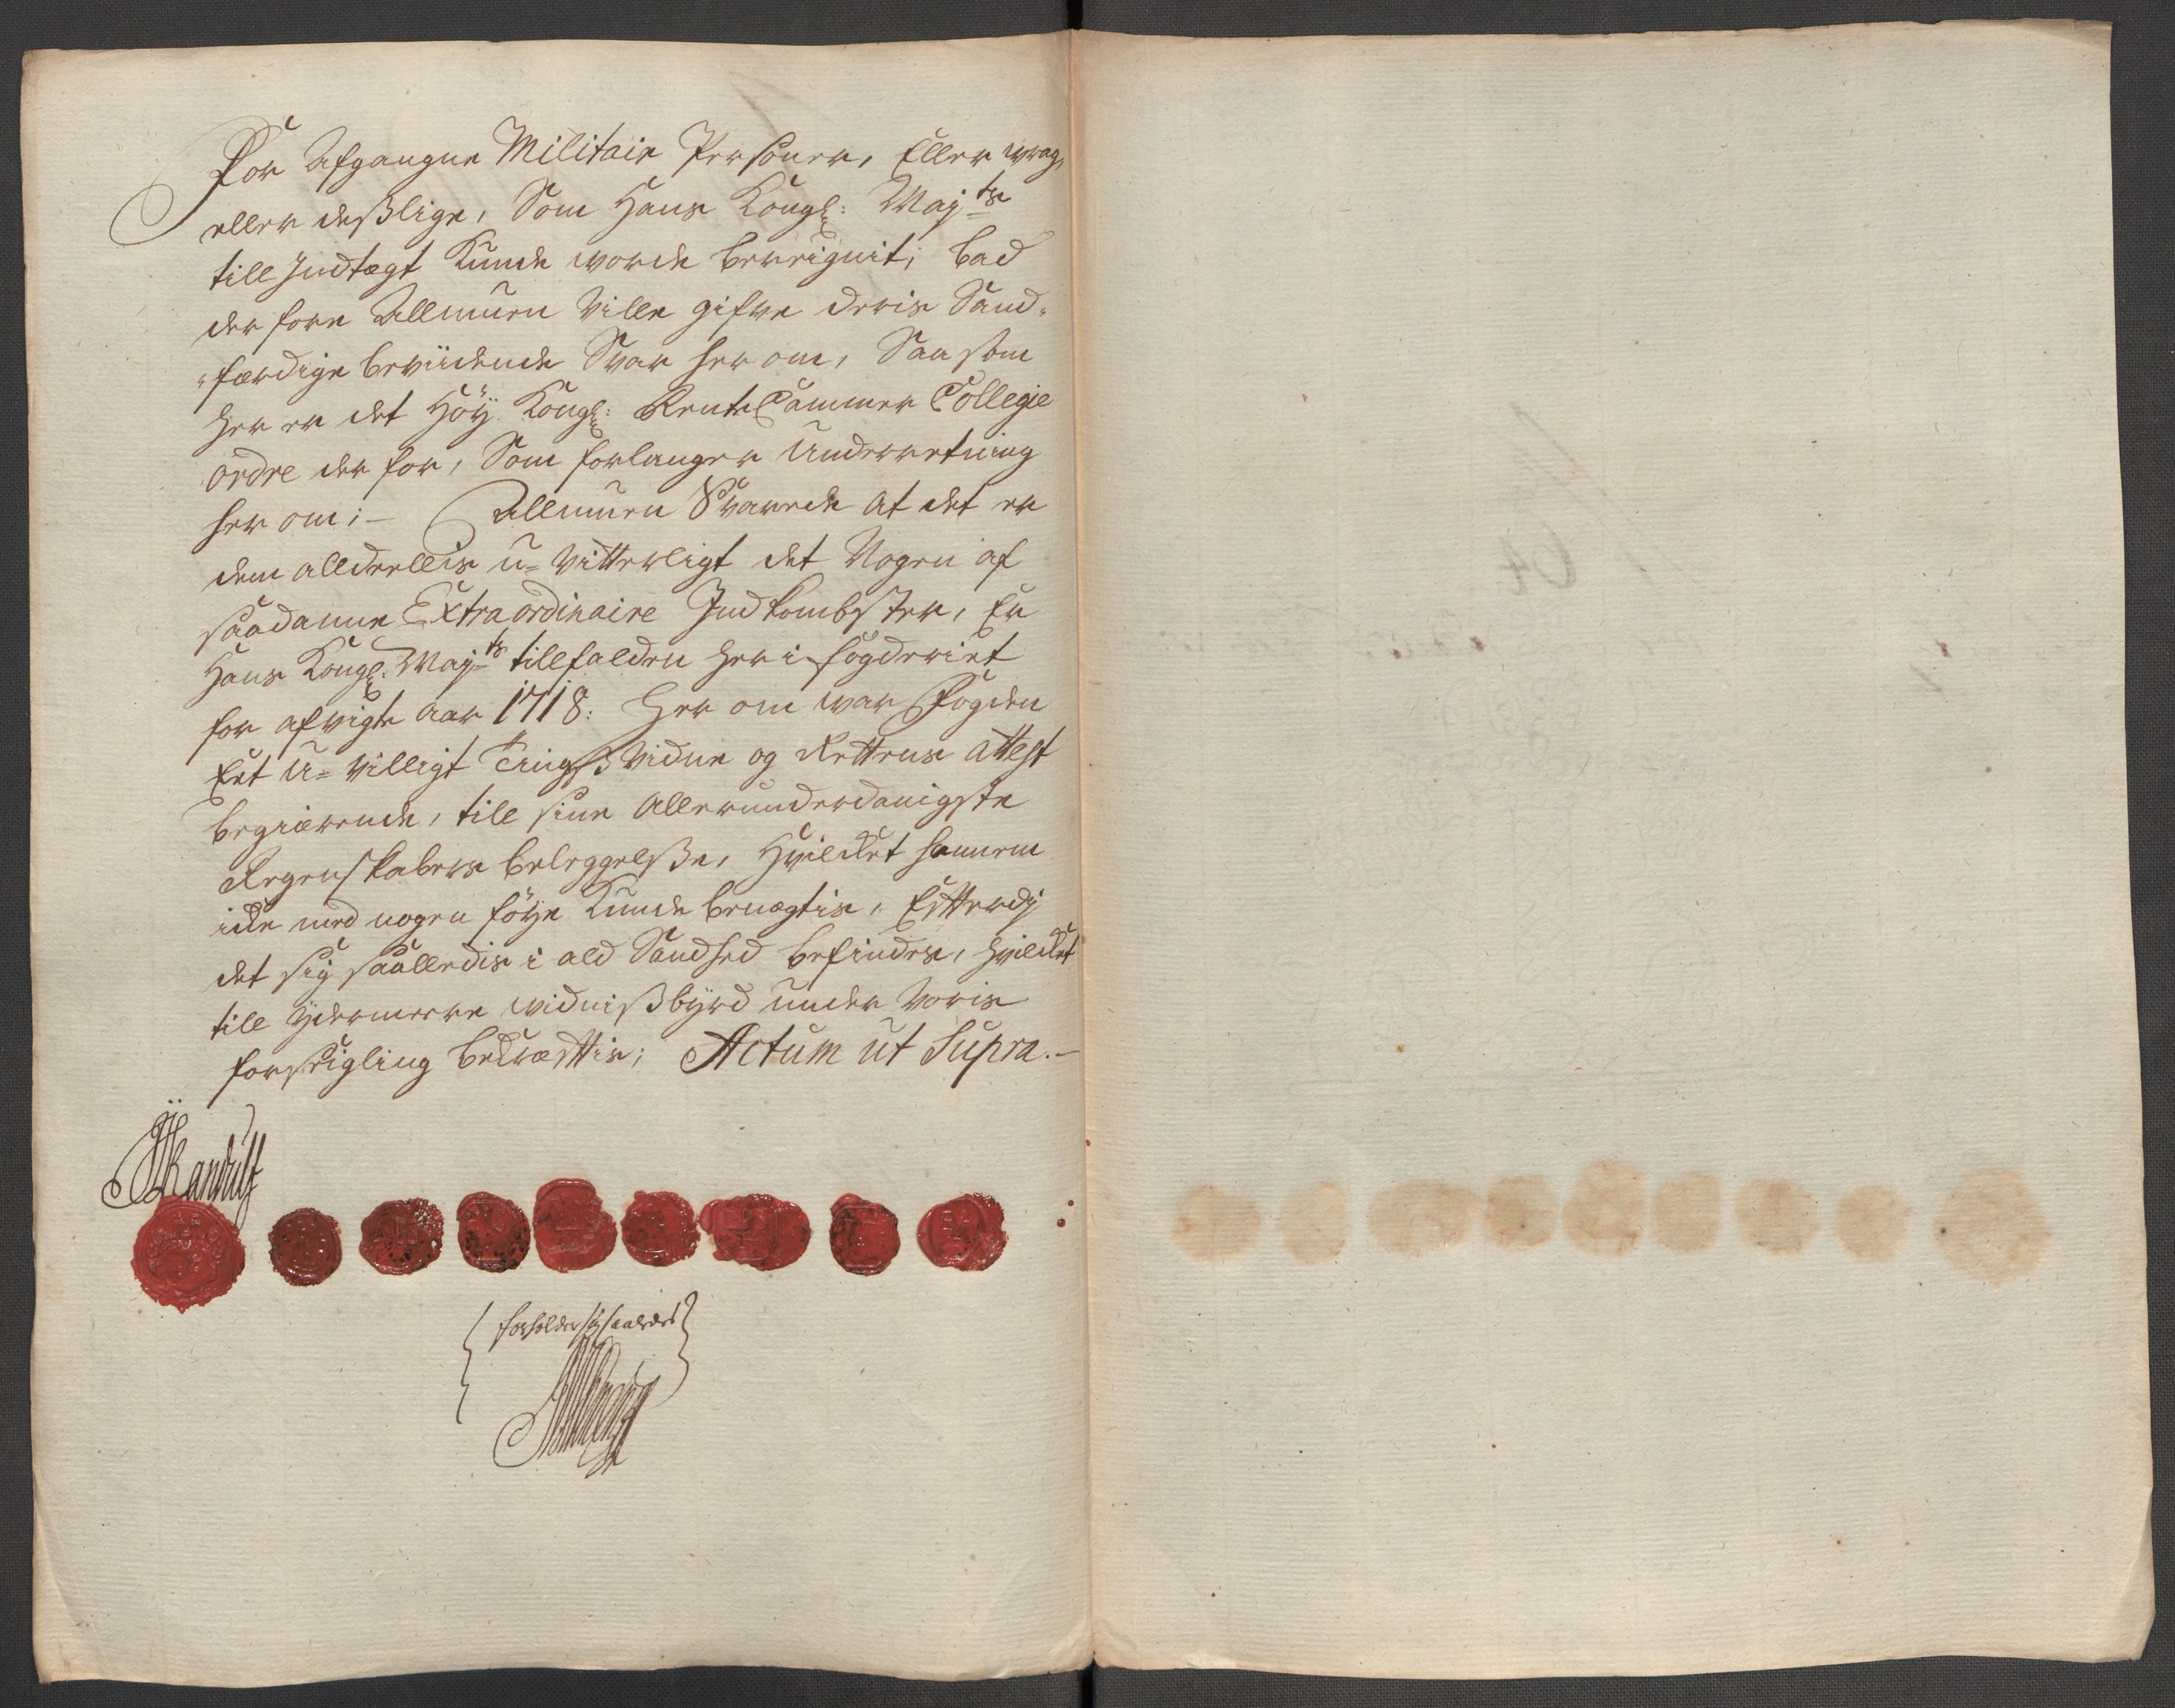 For Afgangne Militair Personer, Eller wrag,
eller deßlige, Som Hans Kongl: Maj:ts
till Indtægt Kunde worde beregnit; bad
der fore Allmuen Ville gifve deris Sand-
færdige beviidende Svar her om, Saasom
her er det Höÿ Kongl: RenteCammer Collegie
ordre der for, Som forlanger Underretning
her om;- Allmuen Svarede At det er
dem alldeellis u-vitterligt det Nogen af
saadanne Extraordinaire Indkombster, Er
Hans Kongl: Maj:ts tillfalden her i fogderiet
for afvigte Aar 1718: Her om war Fogden
Eet U-villigt TingsVidne og Rettens Attest
begiærende, till sine Allerunderdanigste
Regenskabers beleggelße, Hvilcket hannem
icke med nogen föÿe Kunde benægtis, Effterdj
det sig saalledis i ald Sandhed befindes, hvilcket
till ÿdermeere widnißbÿrd under Voris
forseigling bekræfftis; Actum ut Supra.-
Randulf
forholder sig saaledes